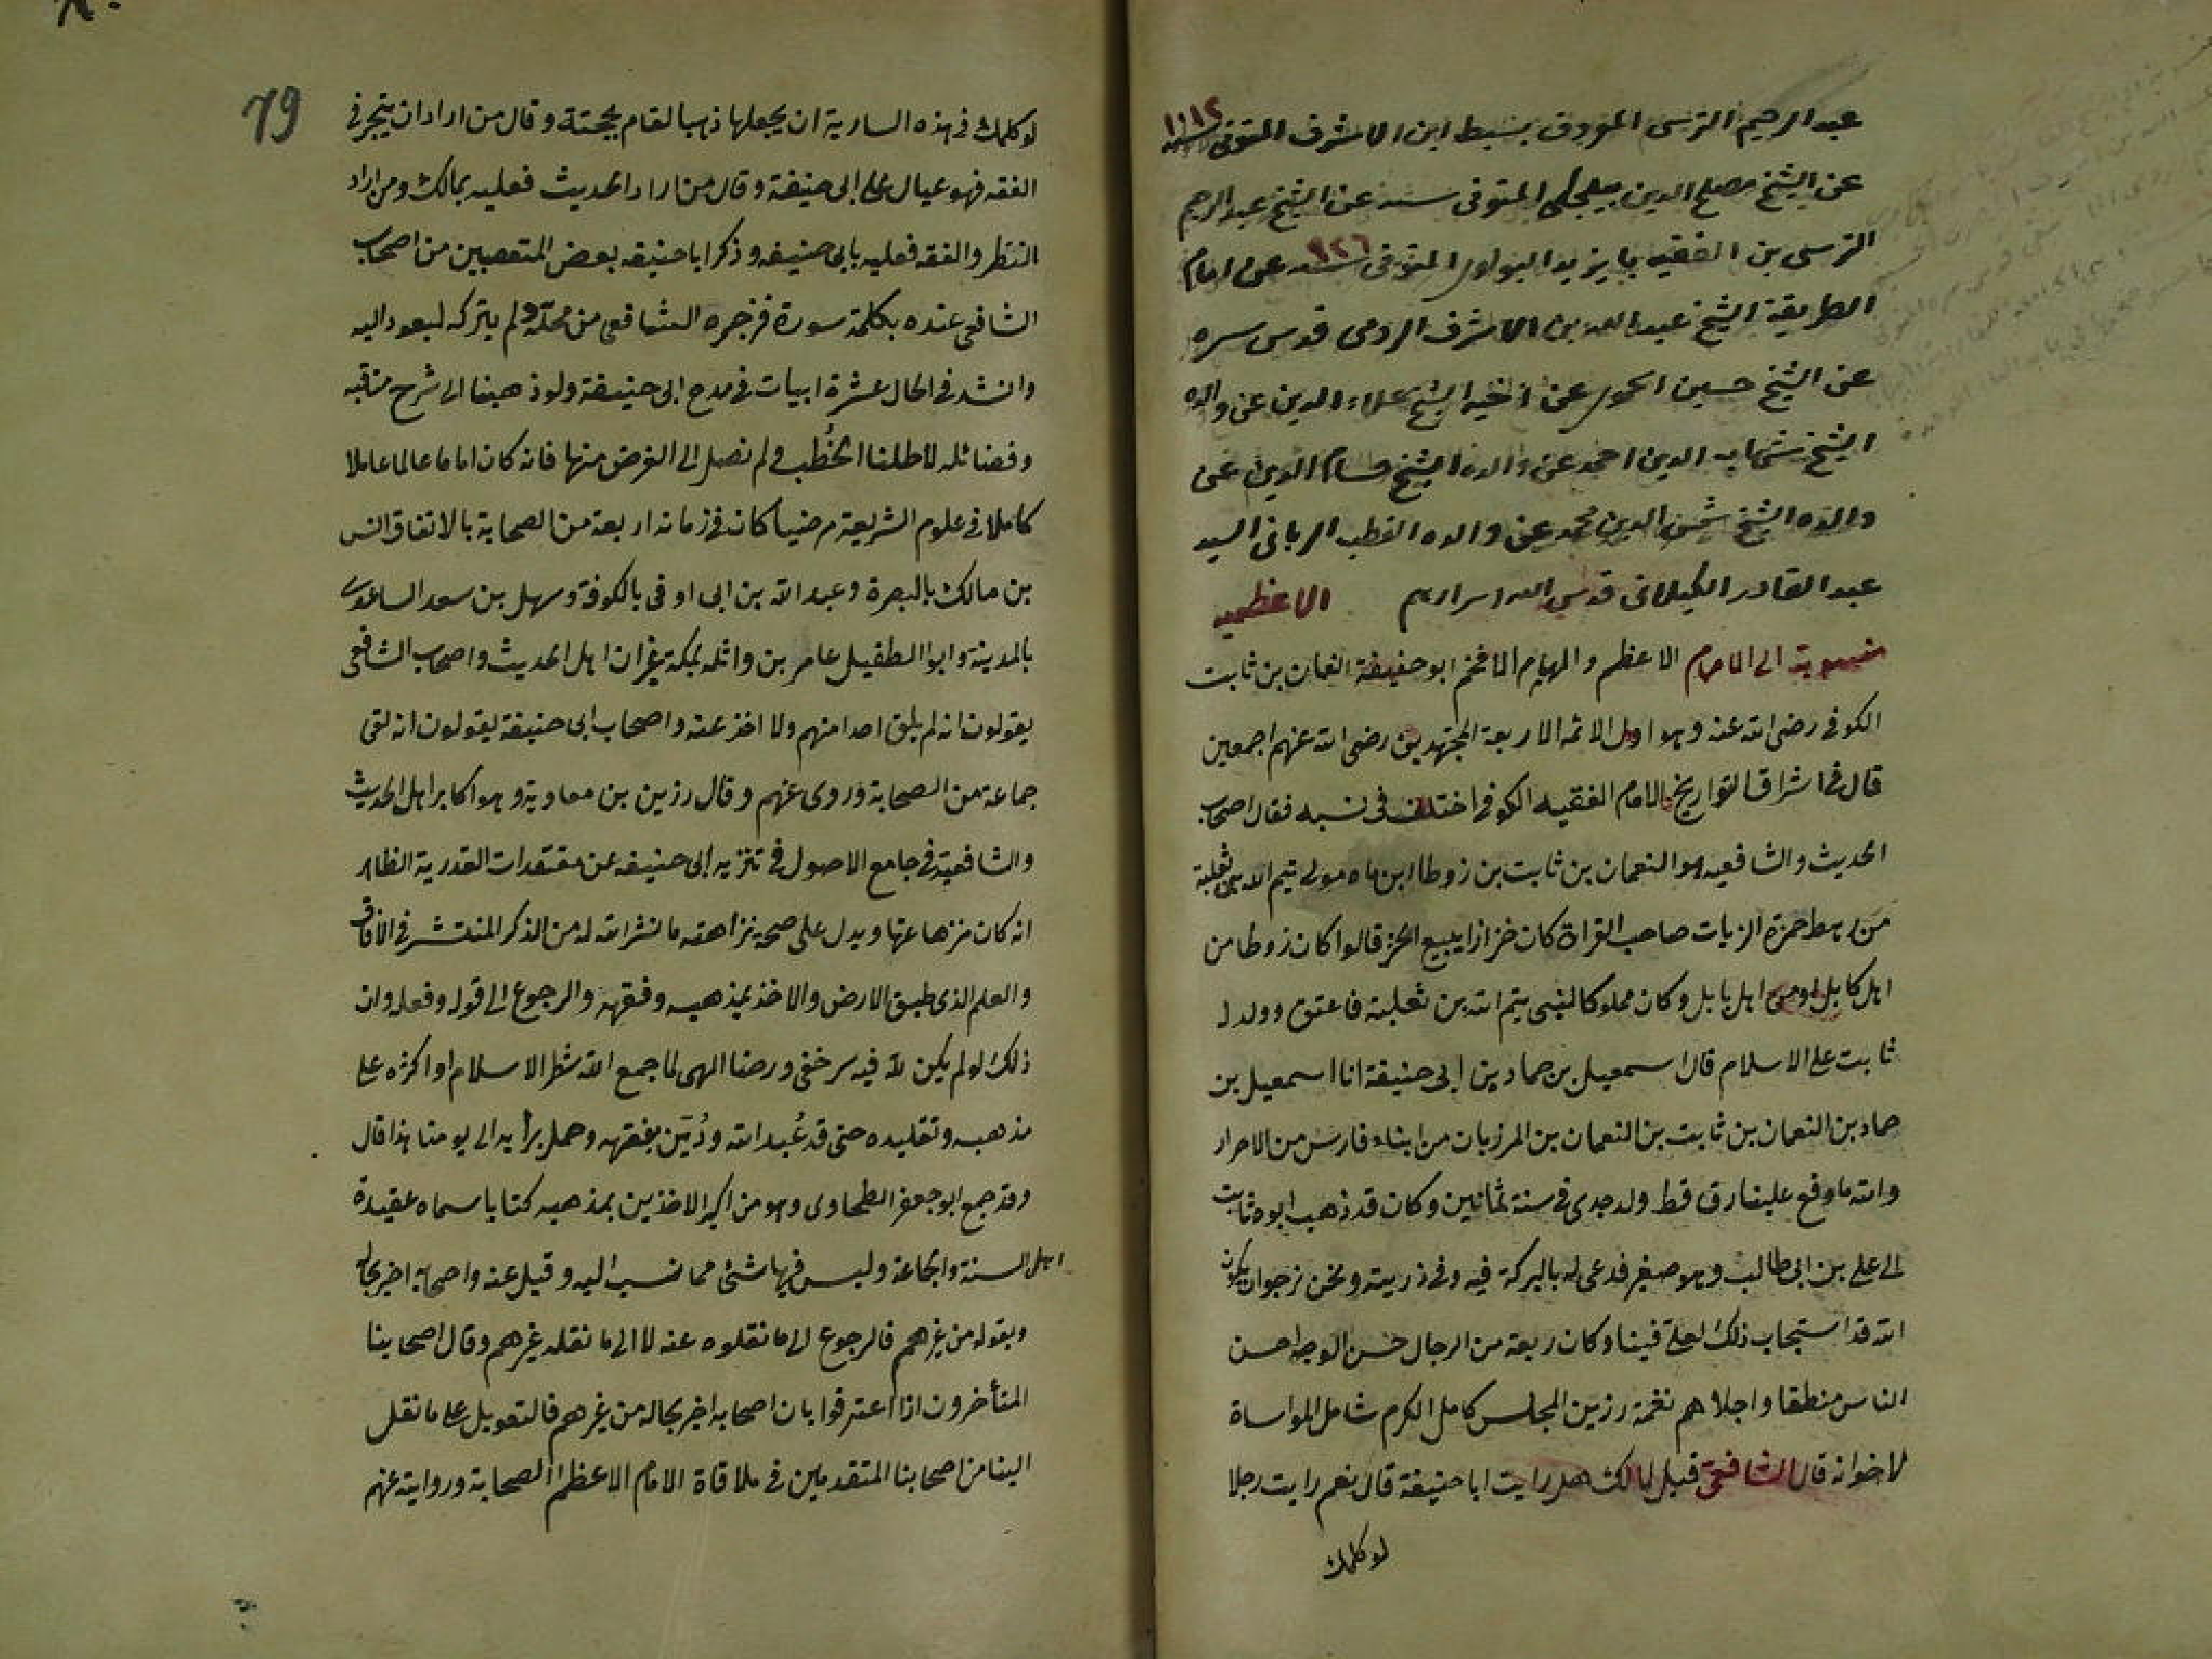 عبد الرحيم الترسى المعروف بسبط ابن الاشرف المتوفى سنة ١١١٢
عن الشيخ مصلح الدين المتوفى سنة عن الشيخ عبد الرحيم
الترسى بن الفقيه بايزيد البولوى المتوفى سنة ٩٢٦ عن امام
الطريقة الشيخ عبد الله بن الاشرف الرومى قدس سره
عن الشيخ حسين الحموى عن اخيه الشيخ علاء الدين عن والده
الشيخ شهاب الدين احمد عن والده الشيخ حسام الدين عن
والده الشيخ شمس الدين محمد عن والده القطب الربانى السيد
عبد القادر الكيلانى قدس الله اسرارهم الاعظميه
منسوبة الى الامام الاعظم والهمام الافخم ابو حنيفة النعمان بن ثابت
الكوفى رضى الله عنه وهو اول الائمه الاربعة المجتهدين رضى الله عنهم اجمعين
قال فى اشراق التواريخ الامام الفقيه الكوفى اختلف فى نسبه فقال اصحاب
الحديث والشافعيه هو النعمان بن ثابت بن زوطا ابن ماه مولى تيم الله بن ثعلبة
من رهط حمزة الزيات صاحب القراة كان خزازا يبيع الخز قالوا كان زوطا من
اهل كابل او من اهل بابل وكان مملوكا لبنى تيم الله بن ثعلبة فاعتق وولد له
ثابت على الاسلام قال اسمعيل بن حماد بن ابى حنيفة انا اسمعيل بن
حماد بن النعمان بن ثابت بن النعمان بن المرزبان من ابناء فارس من الاحرار
والله ما وقع علينا رق قط ولد جدى فى سنة ثمانين وكان قد ذهب ابوه ثابت
الى على بن ابى طالب وهو صغير فدعى له بالبركة فيه وفى ذريته ونحن نرجو ان يكون
الله قد استجاب ذلك لعلى فينا وكان ربعة من الرجال حسن الوجه احسن
الناس منطقا واجلاهم نغمة رزين المجلس كامل الكرم شامل المواساة
لاخوانه قال الشافعى قيل لمالك هل رايت ابا حنيفة قال نعم رايت رجلا
لو كلمك
79
لو كلمك فى هذه السارية ان يجعلها ذهبا لقام بحجته وقال من اراد ان يتبحر فى
الفقه فهو عيال على ابى حنيفة وقال من اراد الحديث فعليه بمالك ومن اراد
النظر والفقه فعليه بابى حنيفه وذكر ابا حنيفه بعض المتعصبين من اصحاب
الشافعى عنده بكلمة سورة فزجره الشافعى من محله ولم يتركه ليعود اليه
وانشد فى الحال عشرة ابيات فى مدح ابى حنيفة ولو ذهبنا الى شرح مناقبه
وفضائله لاطلنا الخُطب ولم نصل الى الغرض منها فانه كان اماما عالما عاملا
كاملا فى علوم الشريعة مرضيا كان فى زمانه اربعة من الصحابة بالاتفاق انس
بن مالك بالبصرة وعبد الله بن ابى اوفى بالكوفة وسهل بن سعد الساعدى
بالمدينة وابو الطفيل عامر بن واثله بمكة غير ان اهل الحديث واصحاب الشافعى
يقولون انه لم يلق احدا منهم ولا اخذ عنه واصحاب ابى حنيفة يقولون انه لقى
جماعة من الصحابة وروى عنهم وقال رزين بن معاوية وهو اكابر اهل الحديث
والشافعية فى جامع الاصول فى تنزيه ابى حنيفه عن مفتقدات القدرية الظاهر
انه كان منزها عنها ويدل على صحة نزاهته ما نشر الله له من الذكر المنتشر فى الافاق
والعلم الذى طبق الارض والاخذ بمذهبه وفقهه والرجوع الى قوله وفعله وان
ذلك لو لم يكن لله فيه سر خفى ورضا الهى لما جمع الله شطر الاسلام او اكثره على
مذهبه وتقليده حتى قد عُبد الله ودُيّن بفقهه وعمل برأيه الى يومنا هذا قال
وقد جمع ابو جعفر الطحاوى وهو من اكبر الاخذين بمذهبه كتابا سماه عقيدة
اهل السنة والجماعة وليس فيها شئ مما نسب اليه وقيل عنه واصحابه اخبر بحاله
وبقوله من غيرهم فالرجوع الى ما نقلوه عنه لا الى ما نقله غيرهم وقال اصحابنا
المتأخرون اذا اعترفوا بان اصحابه اخبر بحاله من غيرهم فالتعويل على ما نقل
الينا من اصحابنا المتقدمين فى ملاقاة الامام الاعظم الصحابة وروايته عنهم